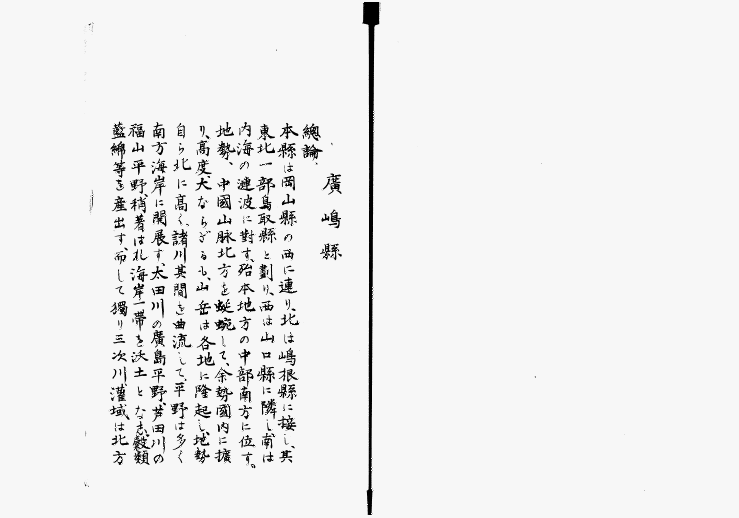 廣嶋縣
總論、
本縣は岡山縣の西に連り、北は嶋根縣に接し、其
東北一部鳥取縣と劃り、西は山口縣に隣し、南は
内海の漣波に對す、殆本地方の中部南方に位す。
地勢、中國山脉北方を蜿蜒して、余勢國内に擴
り、高度大ならざるも、山岳は各地に隆起し、地勢
自ら北に高く、諸川其間を曲流して、平野は多く
南方海岸に開展す、太田川の廣島平野、芦田川の
福山平野、稍著はれ海岸一帶を沃土となし、穀類
藍綿等を産出す、而して獨り三次川灌域は北方